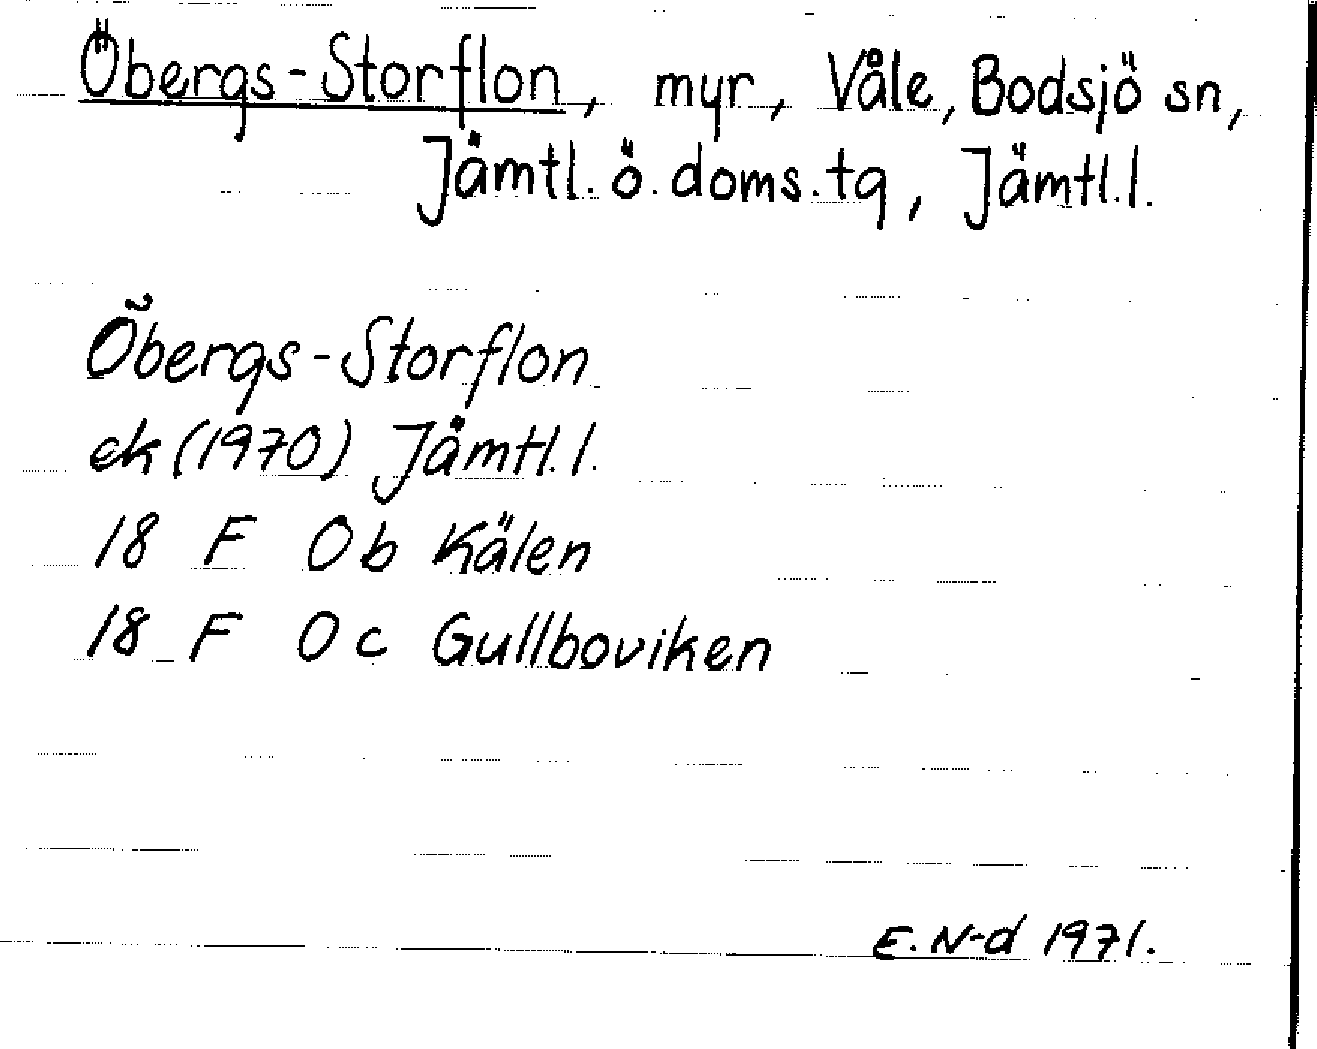 Öbergs-Storflon, myr, Våle, Bodsjö sn,
Jämtl. ö. doms. tg, Jämtl. l.
Öbergs-Storflon
ek (1970) Jämtl. l.
18 F 0b Kälen
18 F 0c Gullboviken
E. N-d 1971.